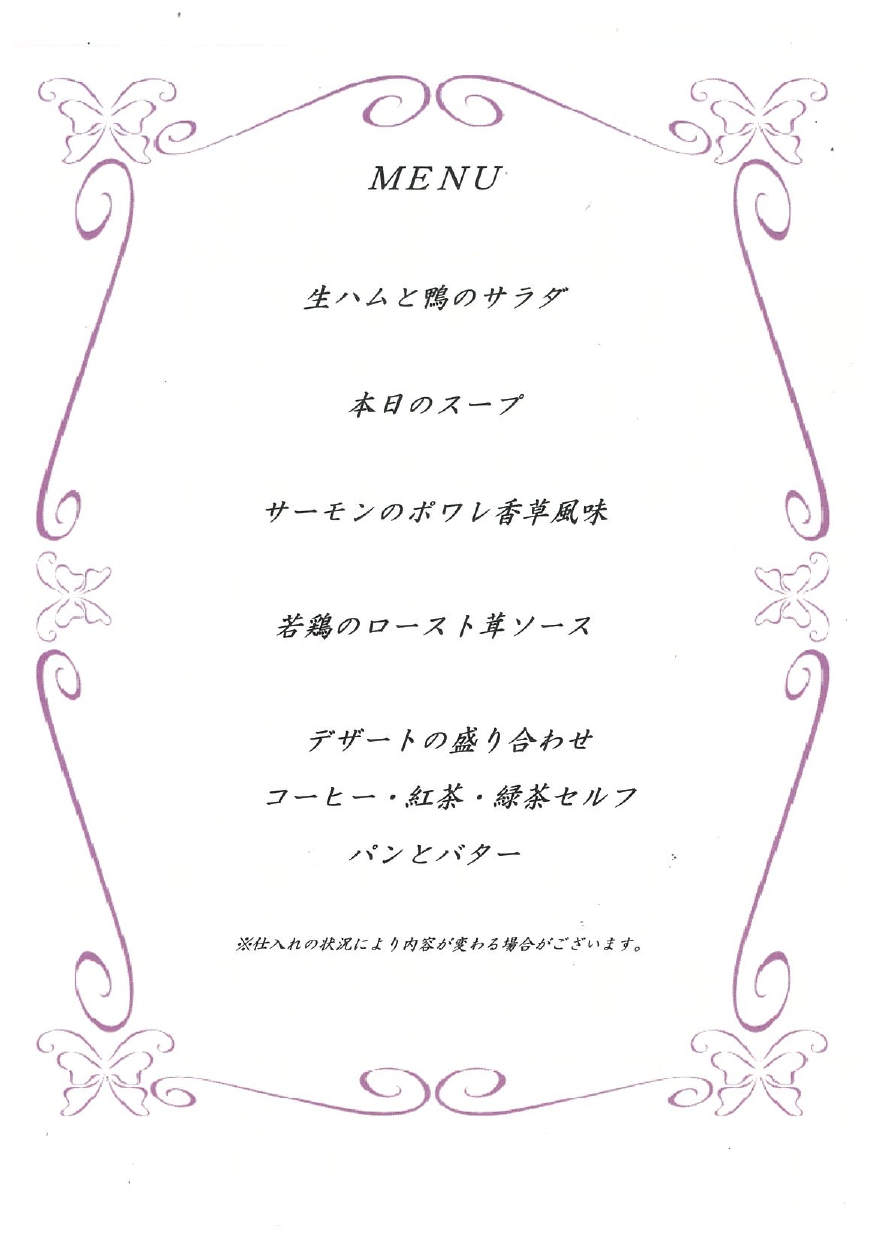 MENU
生ハムと鴨のサラダ
本日のスープ
サーモンのポワレ香草風味
若鶏のロースト茸ソース
デザートの盛り合わせ
コーヒー・紅茶・緑茶セルフ
パンとバター
※仕入れの状況により内容が変わる場合がございます。